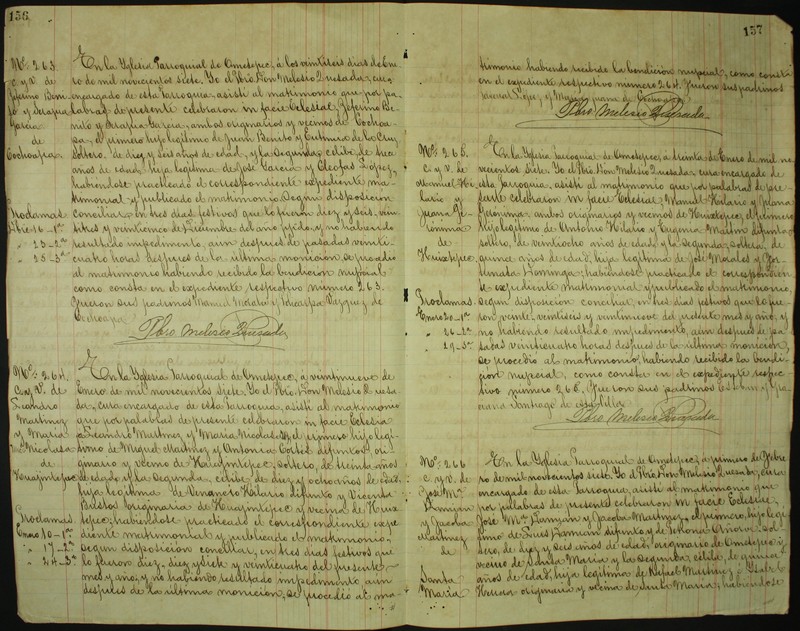 156
Nº 263.
C. y V. de
Zeferino Beni-
to y Serapia
Garcia
de
Cochoapa
Proclamas
Dbre 16-1ª
" 23-2ª
" 25-3ª
En la Iglesia Parroquial de Ometepec, á los veintiseis dias de Ene-
ro de mil novecientos siete. Yo el Pbro. Don Melesio Quesada, cura
encargado de esta Parroquia, asistí al matrimonio que por pa-
labras de presente celebraron in facie Eclesiae, Zeferino Be-
nito y Serapia Garcia, ambos originarios y vecinos de Cochoa-
pa, el primero hijo legítimo de Juan Benito y Eutimia de la Cruz,
soltero, de diez y seis años de edad, y la segunda célibe de trece
años de edad, hija legítima de José Garcia y Cleofas Lopez,
habiéndose practicado el correspondiente expediente ma-
trimonial y publicado el matrimonio segun disposicion
conciliar, en tres dias festivos que lo fueron diez y seis, vein-
titres y veinticinco de Diciembre del año y no habiendo
resultado impedimento, aun despues de pasadas veinti-
cuatro horas despues de la última monicion, se procedió
al matrimonio habiendo recibido la bendicion nupcial
como consta en el expediente respectivo numero 263.
Fueron sus padrinos Manuel Morales y Policarpa Vazquez de
Cochoapa
Pbro Melesio Quezada
Nº 264.
C. y V. de
Leandro
Martinez
y Maria
Nicolasa
de
Huajintepec
Proclamas
Enero 10-1ª
" 17-2ª
" 24-3ª
En la Iglesia Parroquial de Ometepec, á veintinueve de
Enero de mil novecientos siete. Yo el Pbro. Don Melesio Quesa-
da, cura encargado de esta Parroquia, asistí al matrimonio
que por palabras de presente celebraron in facie Eclesia
e Leandro Martinez y Maria Nicolasa, el primero hijo legí-
timo de Miguel Martinez y Antonia Cortes difuntos, ori-
ginario y vecino de Huajintepec, soltero, de treinta años
de edad y la segunda, célibe, de diez y ocho años de edad
hija legítima de Venancio Hilario difunto y Vicenta
Bustos originaria de Huajintepec y vecina de Huix-
tepec, habiéndose practicado el correspondiente expe-
diente matrimonial y publicado el matrimonio,
segun disposicion conciliar, en tres dias festivos que
lo fueron diez, diez y siete y veinticuatro del presente
mes y año, y no habiendo resultado impedimento aun
despues de la última monicion, se procedió al ma-
157
trimonio habiendo recibido la bendicion nupcial, como consta
en el expediente respectivo numero 264. Fueron sus padrinos
Lopez y Maria Juana de
Pbro Melesio Quezada
Nº 265.
C. y V. de
Manuel Hi-
lario y
Juana Ge-
ronima
de
Huixtepec
Proclamas.
Enero 20-1ª
" 26-2ª
" 29-3ª
En la Iglesia Parroquial de Ometepec, á treinta de Enero de mil no-
vecientos siete. Yo el Pbro. Don Melesio Quesada, cura encargado de
esta Parroquia, asistí al matrimonio que por palabras de pre-
sente celebraron in facie Eclesiae, Manuel Hilario y Juana
Geronima, ambos originarios y vecinos de Huixtepec, el primero
hijo legítimo de Antonio Hilario y Eugenia Martin difunta,
soltero, de veintiocho años de edad y la segunda, soltera, de
quince años de edad, hija legítima de José Morales y For-
tunata Dominga; habiéndose practicado el correspondien-
te expediente matrimonial y publicado el matrimonio,
segun disposicion conciliar, en tres dias festivos que lo fue-
ron, veinte, veintiseis y veintinueve del presente mes y año, y
no habiendo resultado impedimento, aun despues de pa-
sadas veinticuatro horas despues de la última monicion,
se procedió al matrimonio, habiendo recibido la bendi-
cion nupcial, como consta en el expediente respec-
tivo numero 265. Fueron sus padrinos Esteban y
Santiago de
Pbro Melesio Quezada
Nº 266
C. y V. de
José Mª
Damian
y Jacoba
Martinez
de
Santa
Maria
En la Iglesia Parroquial de Ometepec, á primero de Febre-
ro de mil novecientos siete. Yo el Pbro. Don Melesio Quesada, cura
encargado de esta Parroquia, asistí al matrimonio que
por palabras de presente celebraron in facie Eclesiae,
José Mª Damian y Jacoba Martinez, el primero, hijo legi-
timo de Luis Damian difunto y de sol-
tero, de diez y seis años de edad, originario de Ometepec y
vecino de Santa Maria y la segunda, célibe, de quince
años de edad, hija legítima de Rafael Martinez é Isabel
Herrera originaria y vecina de Santa Maria; habiéndose